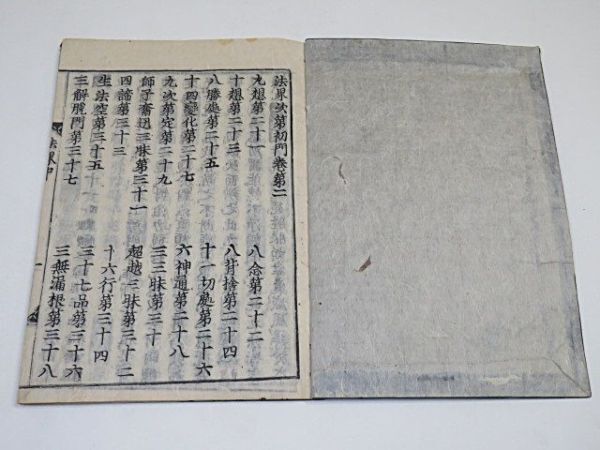 法界次第初門卷第二
九想第二十一　八念第二十二
十想第二十三　八背捨第二十四
八勝處第二十五　十一切處第二十六
十四變化第二十七　六神通第二十八
九次第定第二十九　三三昧第三十
師子奮迅三昧第三十一　超越三昧第三十二
四諦第三十三　十六行第三十四
生法空第三十五　三十七品第三十六
三解脫門第三十七　三無漏根第三十八